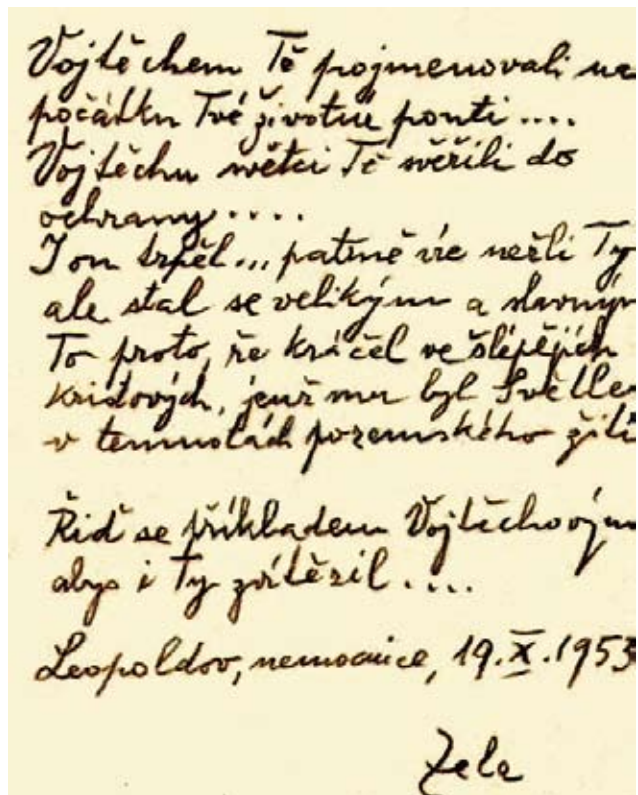 Vojtěchem Tě pojmenovali na
počátku Tvé životní pouti ....
Vojtěchu světci Tě svěřili do
ochrany ....
I on trpěl ... patrně víc nežli Ty
ale stal se velikým a slavným
To proto, že kráčel ve šlépějích
Kristových, jenž mu byl Světlem
v temnotách pozemského žití
Řiď se příkladem Vojtěchovým
abys i Ty zvítězil ....
Leopoldov, nemocnice, 19.X.1953
Zela